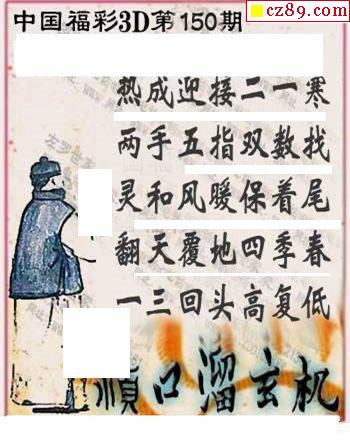 cz89.com
中国福彩3D第150期
热成迎接二一寒
两手五指双数找
灵和风暖保着尾
翻天覆地四季春
一三回头高复低
顺口溜玄机